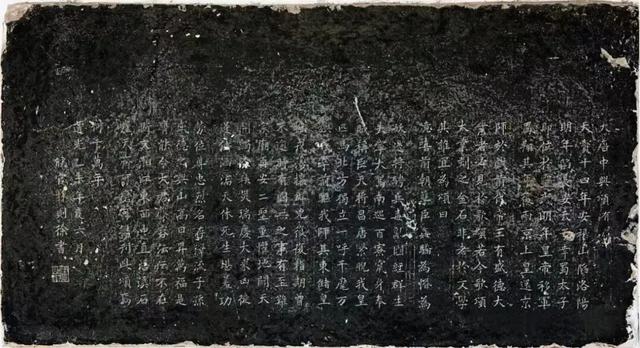 大唐中興頌有序
天寶十四年安祿山陷洛陽
明年陷長安天子幸蜀太子
即位於靈武明年皇帝移軍
鳳翔其年復兩京上皇還京
師於戲前代帝王有盛德大
業者必見於歌頌若今歌頌
大業刻之金石非老於文學
其誰宜為頌曰
噫嘻前朝孽臣姦驕為惛為
妖邊將騁兵毒亂國經群生
失寧大駕南巡百寮竄身奉
賊稱臣天將昌唐繄睨我皇
匹馬北方獨立一呼千麾萬
旟戎卒前驅我師其東儲皇
撫戎蕩攘群兇復復指期曾
不逾時有國無之事有至難
宗廟再安二聖重歡地闢天
開蠲除祅災瑞慶大來凶徒
逆儔涵濡天休死生堪羞功
勞位尊忠烈名存澤流子孫
盛德之興山高日昇萬福是
膺能令大君聲容沄沄不在
斯文湘江東西中直浯溪石
崖天齊可磨可鐫刊此頌焉
何千萬年
道光年丁亥六月
徐書